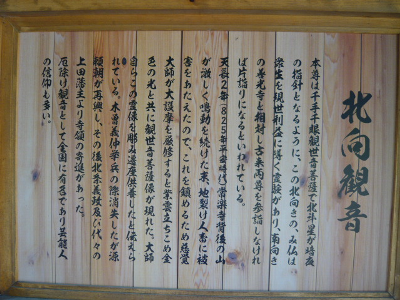 北向観音
本尊は千手千眼観世音菩薩で北斗星が暗夜
の指針となるように、この北向きのみ仏は
衆生を現世利益に導く霊験があり、南向き
の善光寺と相対し古来両尊を参詣しなけれ
ば片詣りになるといわれている。
天長2年(825年平安時代)常楽寺背後の山
が激しく鳴動を続けた末、地裂け人畜に被
害をあたえたので、これを鎮めるため慈覚
大師が大護摩を厳修すると紫雲立ちこめ金
色の光と共に観世音菩薩像が現れた。大師
自らこの霊像を彫み遷座供養したと伝えら
れている。木曽義仲挙兵の際消失したが源
頼朝が再興し、その後北条義政及び代々の
上田藩主より寺領の寄進があった。
厄除け観音として全国に有名であり芸能人
の信仰も多い。